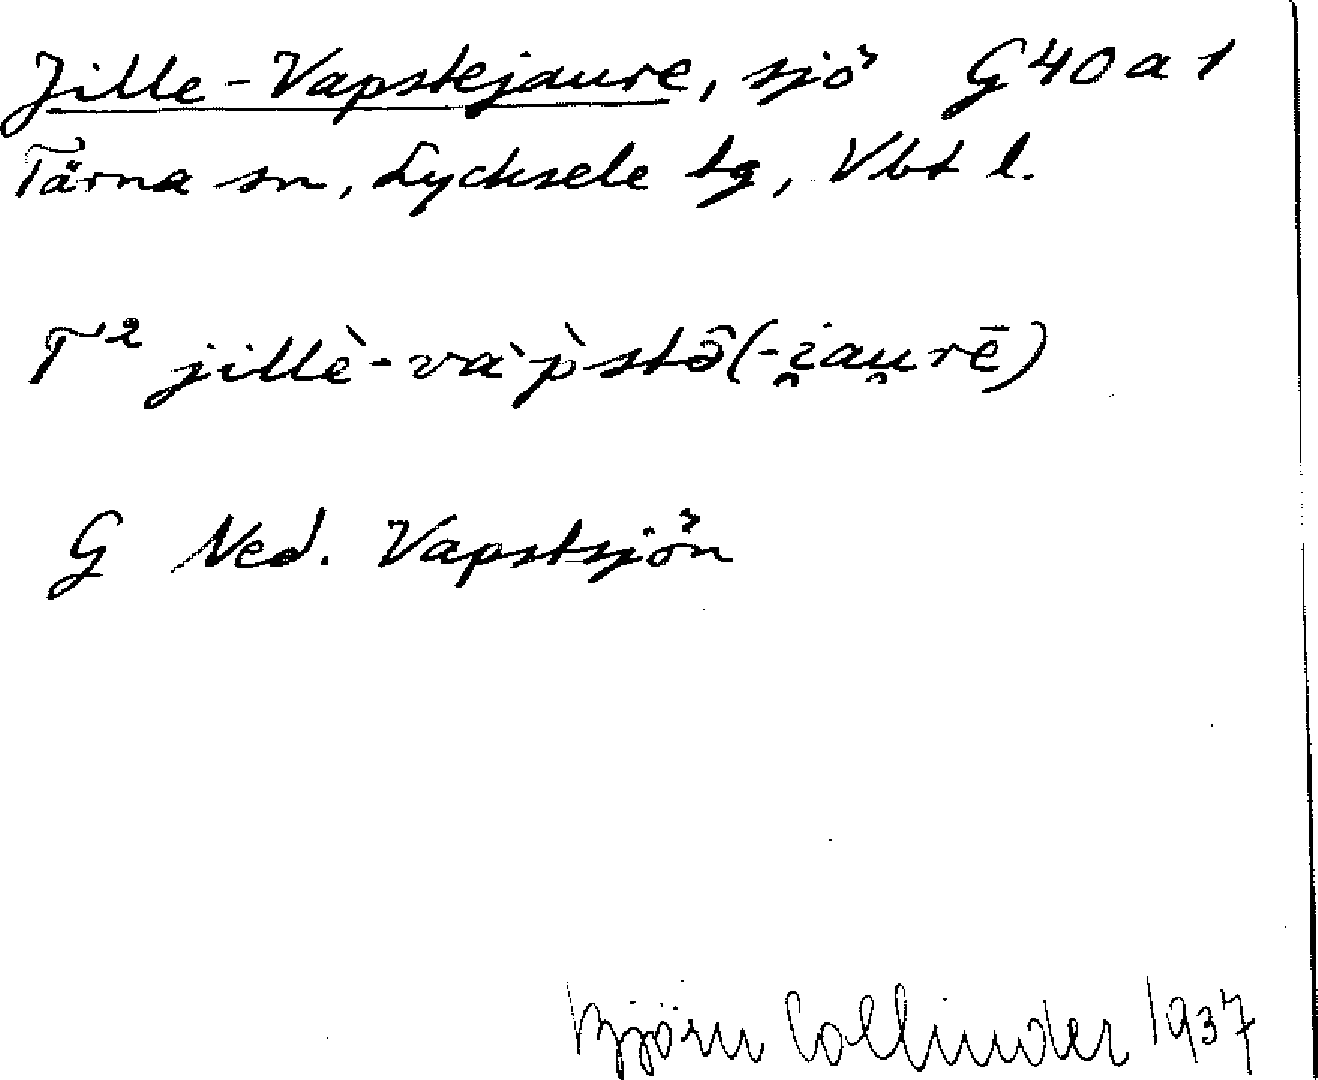 Jille-Vapstejaure, sjö G40a1
Tärna sn, Lycksele lg, Vbt l.
T² jillè-và p̀stə̂(-i̯au̯rē)
G Ned. Vapstsjön
Björn Collinder 1937